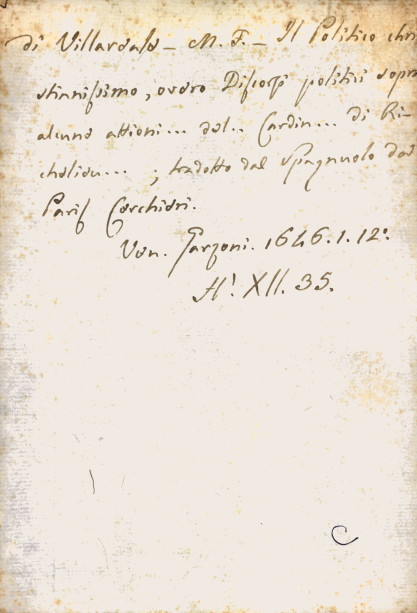 di Villareale - M. F. - Il Politico chri
stianissimo, overo Discorsi politici sopra
alcune attioni... del.. Cardin... di Ri-
chelieu... ; tradotto dal Spagnuolo da
Paris Cerchieri.
Ven. Garzoni. 1646. 1. 12º
H'. XII. 35.
C